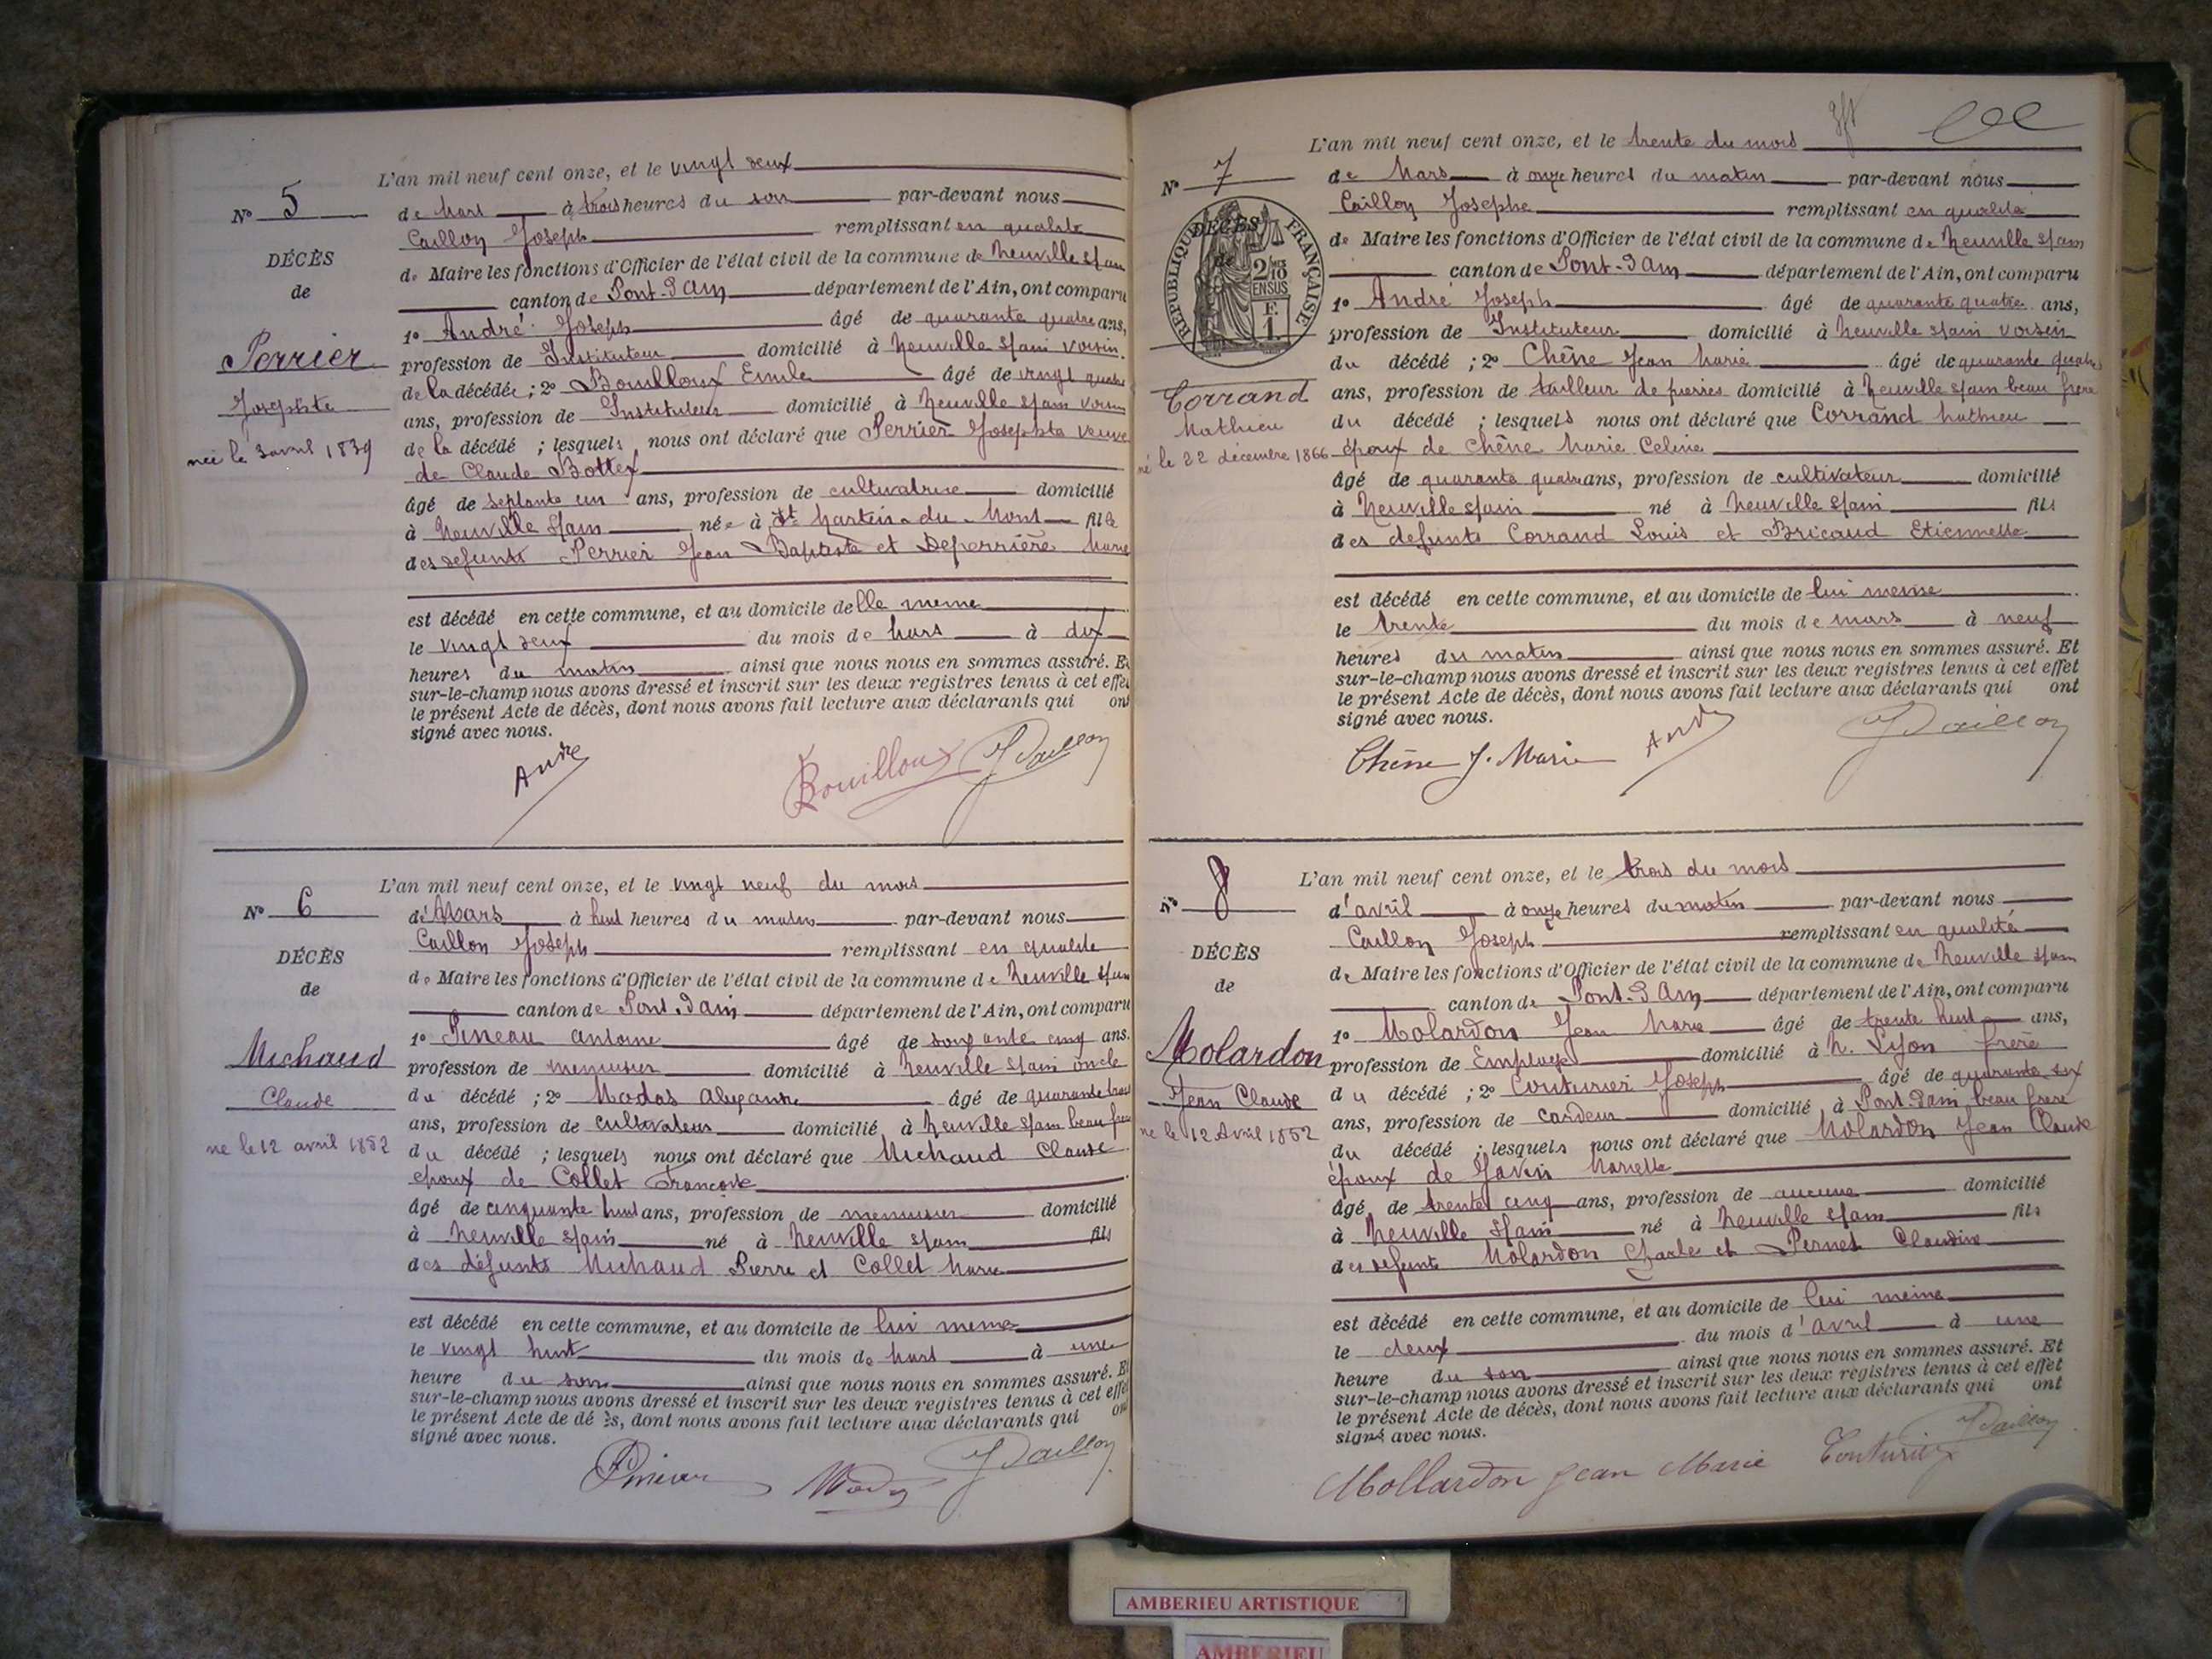 L'an mil neuf cent onze, et le vingt deux
Nº 5
de Mars à trois heures du soir par-devant nous
Caillon Joseph remplissant en qualité
DÉCÈS
de Maire les fonctions d'Officier de l'état civil de la commune de Neuville s/ain
de
canton de Pont-d'Ain département de l'Ain, ont comparu
1º André Joseph âgé de quarante quatre ans,
Perrier
profession de Instituteur domicilié à Neuville s/ain voisin
de la décédée ; 2º Bouilloux Emile âgé de vingt quatre
Josephte
ans, profession de Instituteur domicilié à Neuville s/ain voisin
née le 3 avril 1839
de la décédé ; lesquels nous ont déclaré que Perrier Josephte veuve
de Claude Bottex
âgé de septante un ans, profession de cultivatrice domicilié
à Neuville s/ain née à St Martin-du-Mont fille
des defunts Perrier Jean Baptiste et Deperrière Marie
est décédé en cette commune, et au domicile de lle meme
le vingt deux du mois de Mars à dix
heures du matin ainsi que nous nous en sommes assuré. Et
sur-le-champ nous avons dressé et inscrit sur les deux registres tenus à cet effet
le présent Acte de décès, dont nous avons fait lecture aux déclarants qui ont
signé avec nous.
André Bouilloux J Caillon
L'an mil neuf cent onze, et le vingt neuf du mois
Nº 6
de Mars à huit heures du matin par-devant nous
Caillon Joseph remplissant en qualité
DÉCÈS
de Maire les fonctions d'Officier de l'état civil de la commune de Neuville s/ain
de
canton de Pont-d'ain département de l'Ain, ont comparu
1º Pineau Antoine âgé de soixante cinq ans.
Michaud
profession de menuisier domicilié à Neuville s/ain oncle
Claude
du décédé ; 2º Modas Alexandre âgé de quarante trois
ans, profession de cultivateur domicilié à Neuville s/ain beau frere
né le 12 avril 1852
du décédé ; lesquels nous ont déclaré que Michaud Claude
époux de Collet Françoise
âgé de cinquante huit ans, profession de menuisier domicilié
à Neuville s/ain né à Neuville s/ain fils
des défunts Michaud Pierre et Collet Marie
est décédé en cette commune, et au domicile de lui meme
le vingt huit du mois de Mars à une
heure du soir ainsi que nous nous en sommes assuré. Et
sur-le-champ nous avons dressé et inscrit sur les deux registres tenus à cet effet
le présent Acte de décès, dont nous avons fait lecture aux déclarants qui ont
signé avec nous.
Pineau J Caillon
L'an mil neuf cent onze, et le trente du mois
Nº 7
de Mars à onze heures du matin par-devant nous
Caillon Josephe remplissant en qualité
DÉCÈS
de
RÉPUBLIQUE FRANÇAISE
2/10 EN SUS
F. 1.
de Maire les fonctions d'Officier de l'état civil de la commune de Neuville s/ain
canton de Pont-d'Ain département de l'Ain, ont comparu
1º André Joseph âgé de quarante quatre ans,
profession de Instituteur domicilié à Neuville s/ain voisin
du décédé ; 2º Chêne Jean Marie âgé de quarante quatre
Corrand
ans, profession de tailleur de pierres domicilié à Neuville s/ain beau frere
Mathieu
du décédé ; lesquels nous ont déclaré que Corrand Mathieu
né le 22 décembre 1866
époux de Chêne Marie Celine
âgé de quarante quatre ans, profession de cultivateur domicilié
à Neuville s/ain né à Neuville s/ain fils
des defunts Corrand Louis et Bricaud Etiennette
est décédé en cette commune, et au domicile de lui meme
le trente du mois de mars à neuf
heures du matin ainsi que nous nous en sommes assuré. Et
sur-le-champ nous avons dressé et inscrit sur les deux registres tenus à cet effet
le présent Acte de décès, dont nous avons fait lecture aux déclarants qui ont
signé avec nous.
Chêne J. Marie André J Caillon
L'an mil neuf cent onze, et le trois du mois
Nº 8
d'avril à onze heures du matin par-devant nous
Caillon Joseph remplissant en qualité
DÉCÈS
de Maire les fonctions d'Officier de l'état civil de la commune de Neuville s/ain
de
canton de Pont-d'Ain département de l'Ain, ont comparu
1º Molardon Jean Marie âgé de trente huit ans,
Molardon
profession de Employé domicilié à Lyon frère
Jean Claude
du décédé ; 2º Couturier Joseph âgé de quarante six
né le 12 Avril 1852
ans, profession de cardeur domicilié à Pont-d'ain beau frere
du décédé ; lesquels nous ont déclaré que Molardon Jean Claude
époux de Mariette
âgé de trente cinq ans, profession de aucune domicilié
à Neuville s/ain né à Neuville s/ain fils
des defunts Molardon Charles et Pernet Claudine
est décédé en cette commune, et au domicile de lui meme
le deux du mois d'avril à une
heure du soir ainsi que nous nous en sommes assuré. Et
sur-le-champ nous avons dressé et inscrit sur les deux registres tenus à cet effet
le présent Acte de décès, dont nous avons fait lecture aux déclarants qui ont
signé avec nous.
Mollardon Jean Marie Couturier J Caillon
AMBERIEU ARTISTIQUE
AMBERIEU